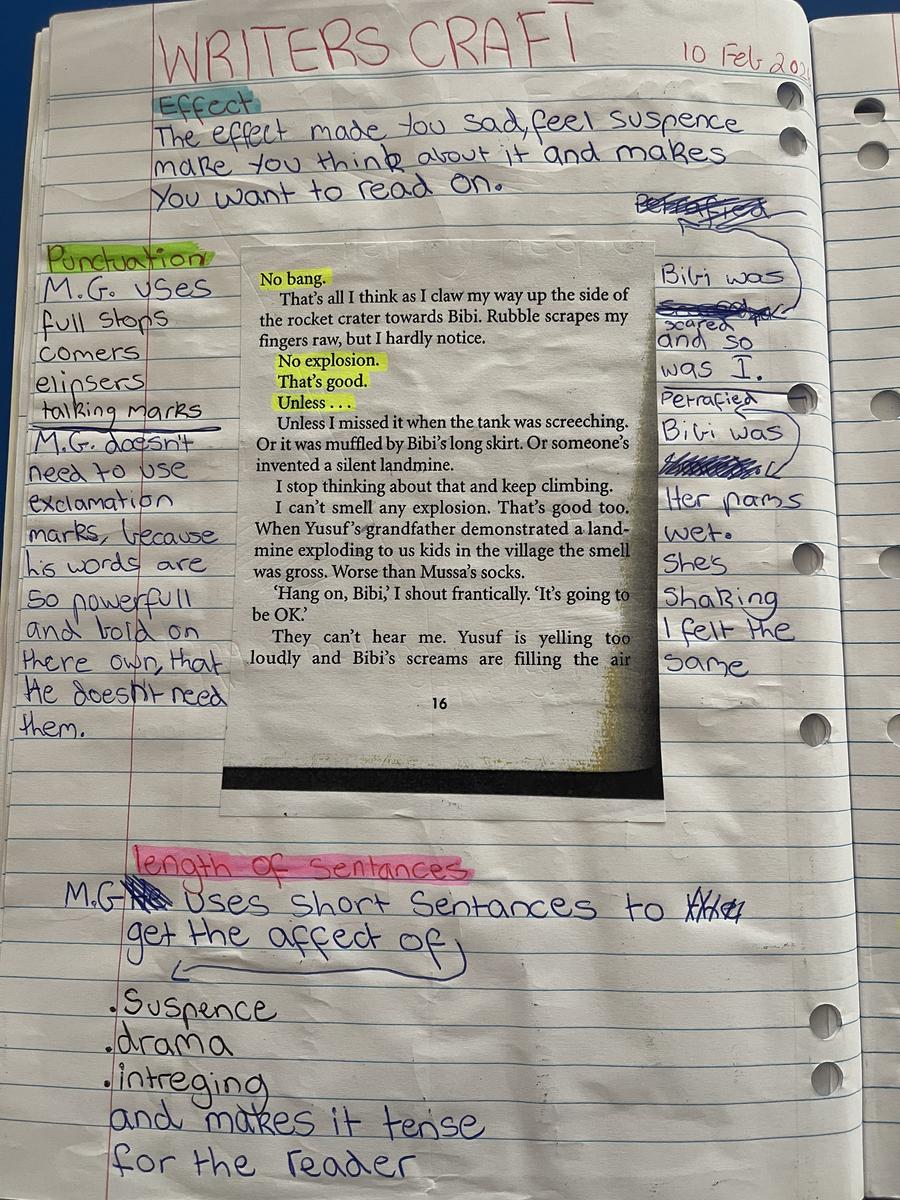 WRITERS CRAFT
10 Feb 202
Effect
The effect made you sad, feel suspence
make you think about it and makes
you want to read on.
Punctuation
M.G. uses
full stops
comers
elipsers
talking marks
M.G. doesn't
need to use
exclamation
marks, because
his words are
so powerfull
and bold on
there own, that
He doesn't need
them.
No bang.
That's all I think as I claw my way up the side of
the rocket crater towards Bibi. Rubble scrapes my
fingers raw, but I hardly notice.
No explosion.
That's good.
Unless . . .
Unless I missed it when the tank was screeching.
Or it was muffled by Bibi's long skirt. Or someone's
invented a silent landmine.
I stop thinking about that and keep climbing.
I can't smell any explosion. That's good too.
When Yusuf's grandfather demonstrated a land-
mine exploding to us kids in the village the smell
was gross. Worse than Mussa's socks.
'Hang on, Bibi,' I shout frantically. 'It's going to
be OK.'
They can't hear me. Yusuf is yelling too
loudly and Bibi's screams are filling the air
16
Bibi was
scared
and so
was I.
Petrafied
Bibi was
Her pams
wet.
She's
Shaking
I felt the
same
length of sentances
M.G uses short sentances to
get the affect of
.Suspence
.drama
.intreging
and makes it tense
for the reader